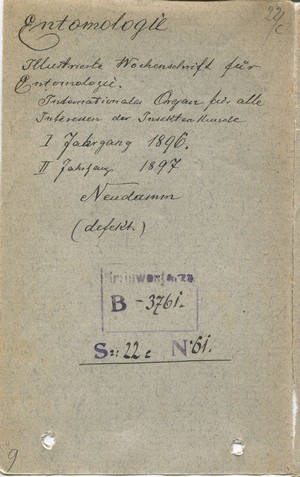 22/c
Entomologie
Illustrierte Wochenschrift für
Entomologie.
Internationales Organ für alle
Interessen der Insektenkunde
I Jahrgang 1896.
II Jahrgang 1897
Neudamm
(defekt.)
B - 3761.
S: 22 c N: 61.
9